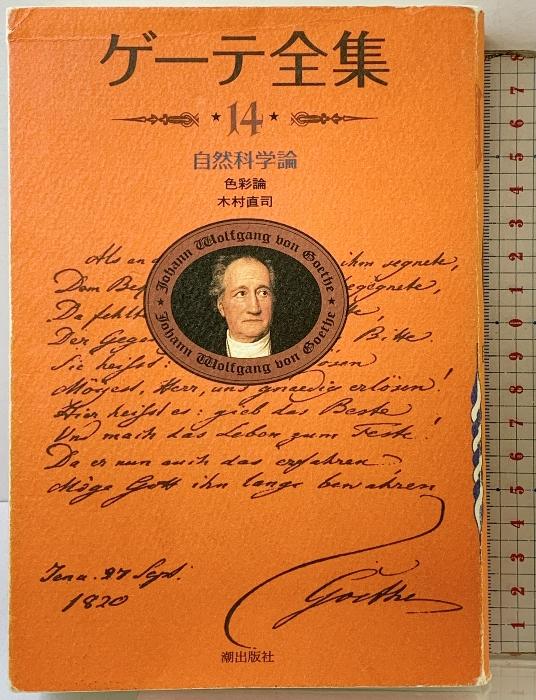 ゲーテ全集
★14★
自然科学論
色彩論
木村直司
Johann Wolfgang von Goethe
Johann Wolfgang von Goethe
Als ihm segnete,
Dem egegnete,
Da fehlt
Der Gegen Bitte.
Sie heißt: ösen
Mögest, Herr, uns gnaedig erlösen!
Hier heißt es: gieb das Beste
Und mach das Leben zum Feste!
Da er nun auch das erfahren
Möge Gott ihn lange bewahren
Jena. 27 Sept.
1820
Goethe
潮出版社
8 7 6 5 4 3 2 1 0 9 8 7 6 5 4 3 2 1